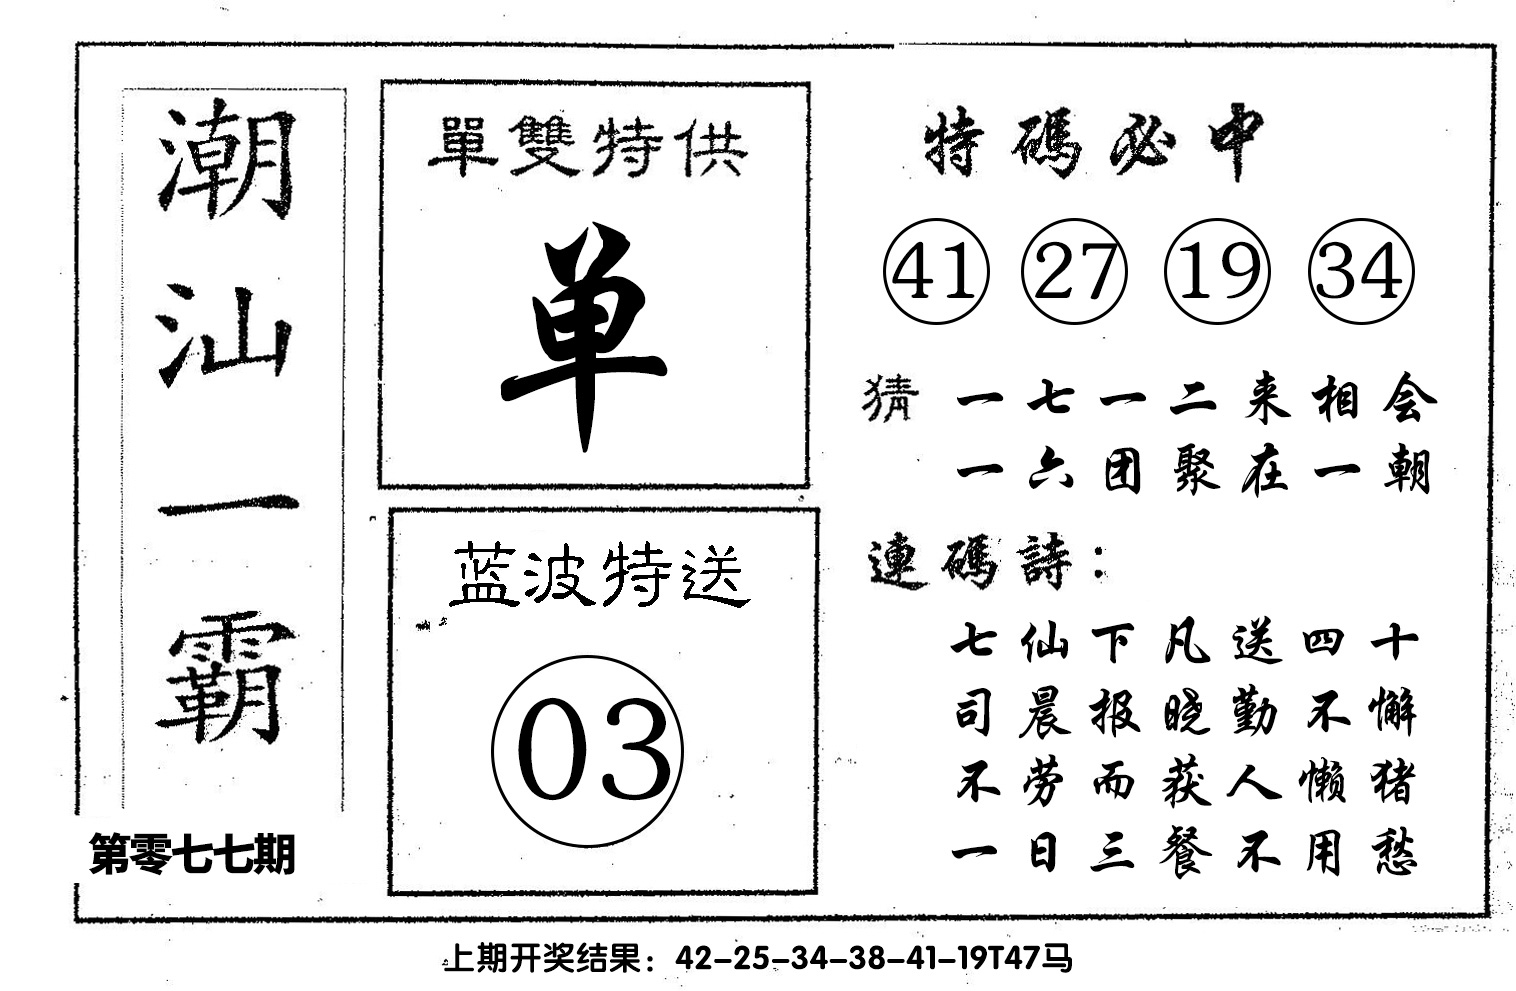 潮汕一霸
第零七七期
單雙特供
单
蓝波特送
03
特碼必中
41 27 19 34
猜 一七一二来相会
一六团聚在一朝
連碼詩：
七仙下凡送四十
司晨报晓勤不懈
不劳而获人懒猪
一日三餐不用愁
上期开奖结果：42-25-34-38-41-19T47马